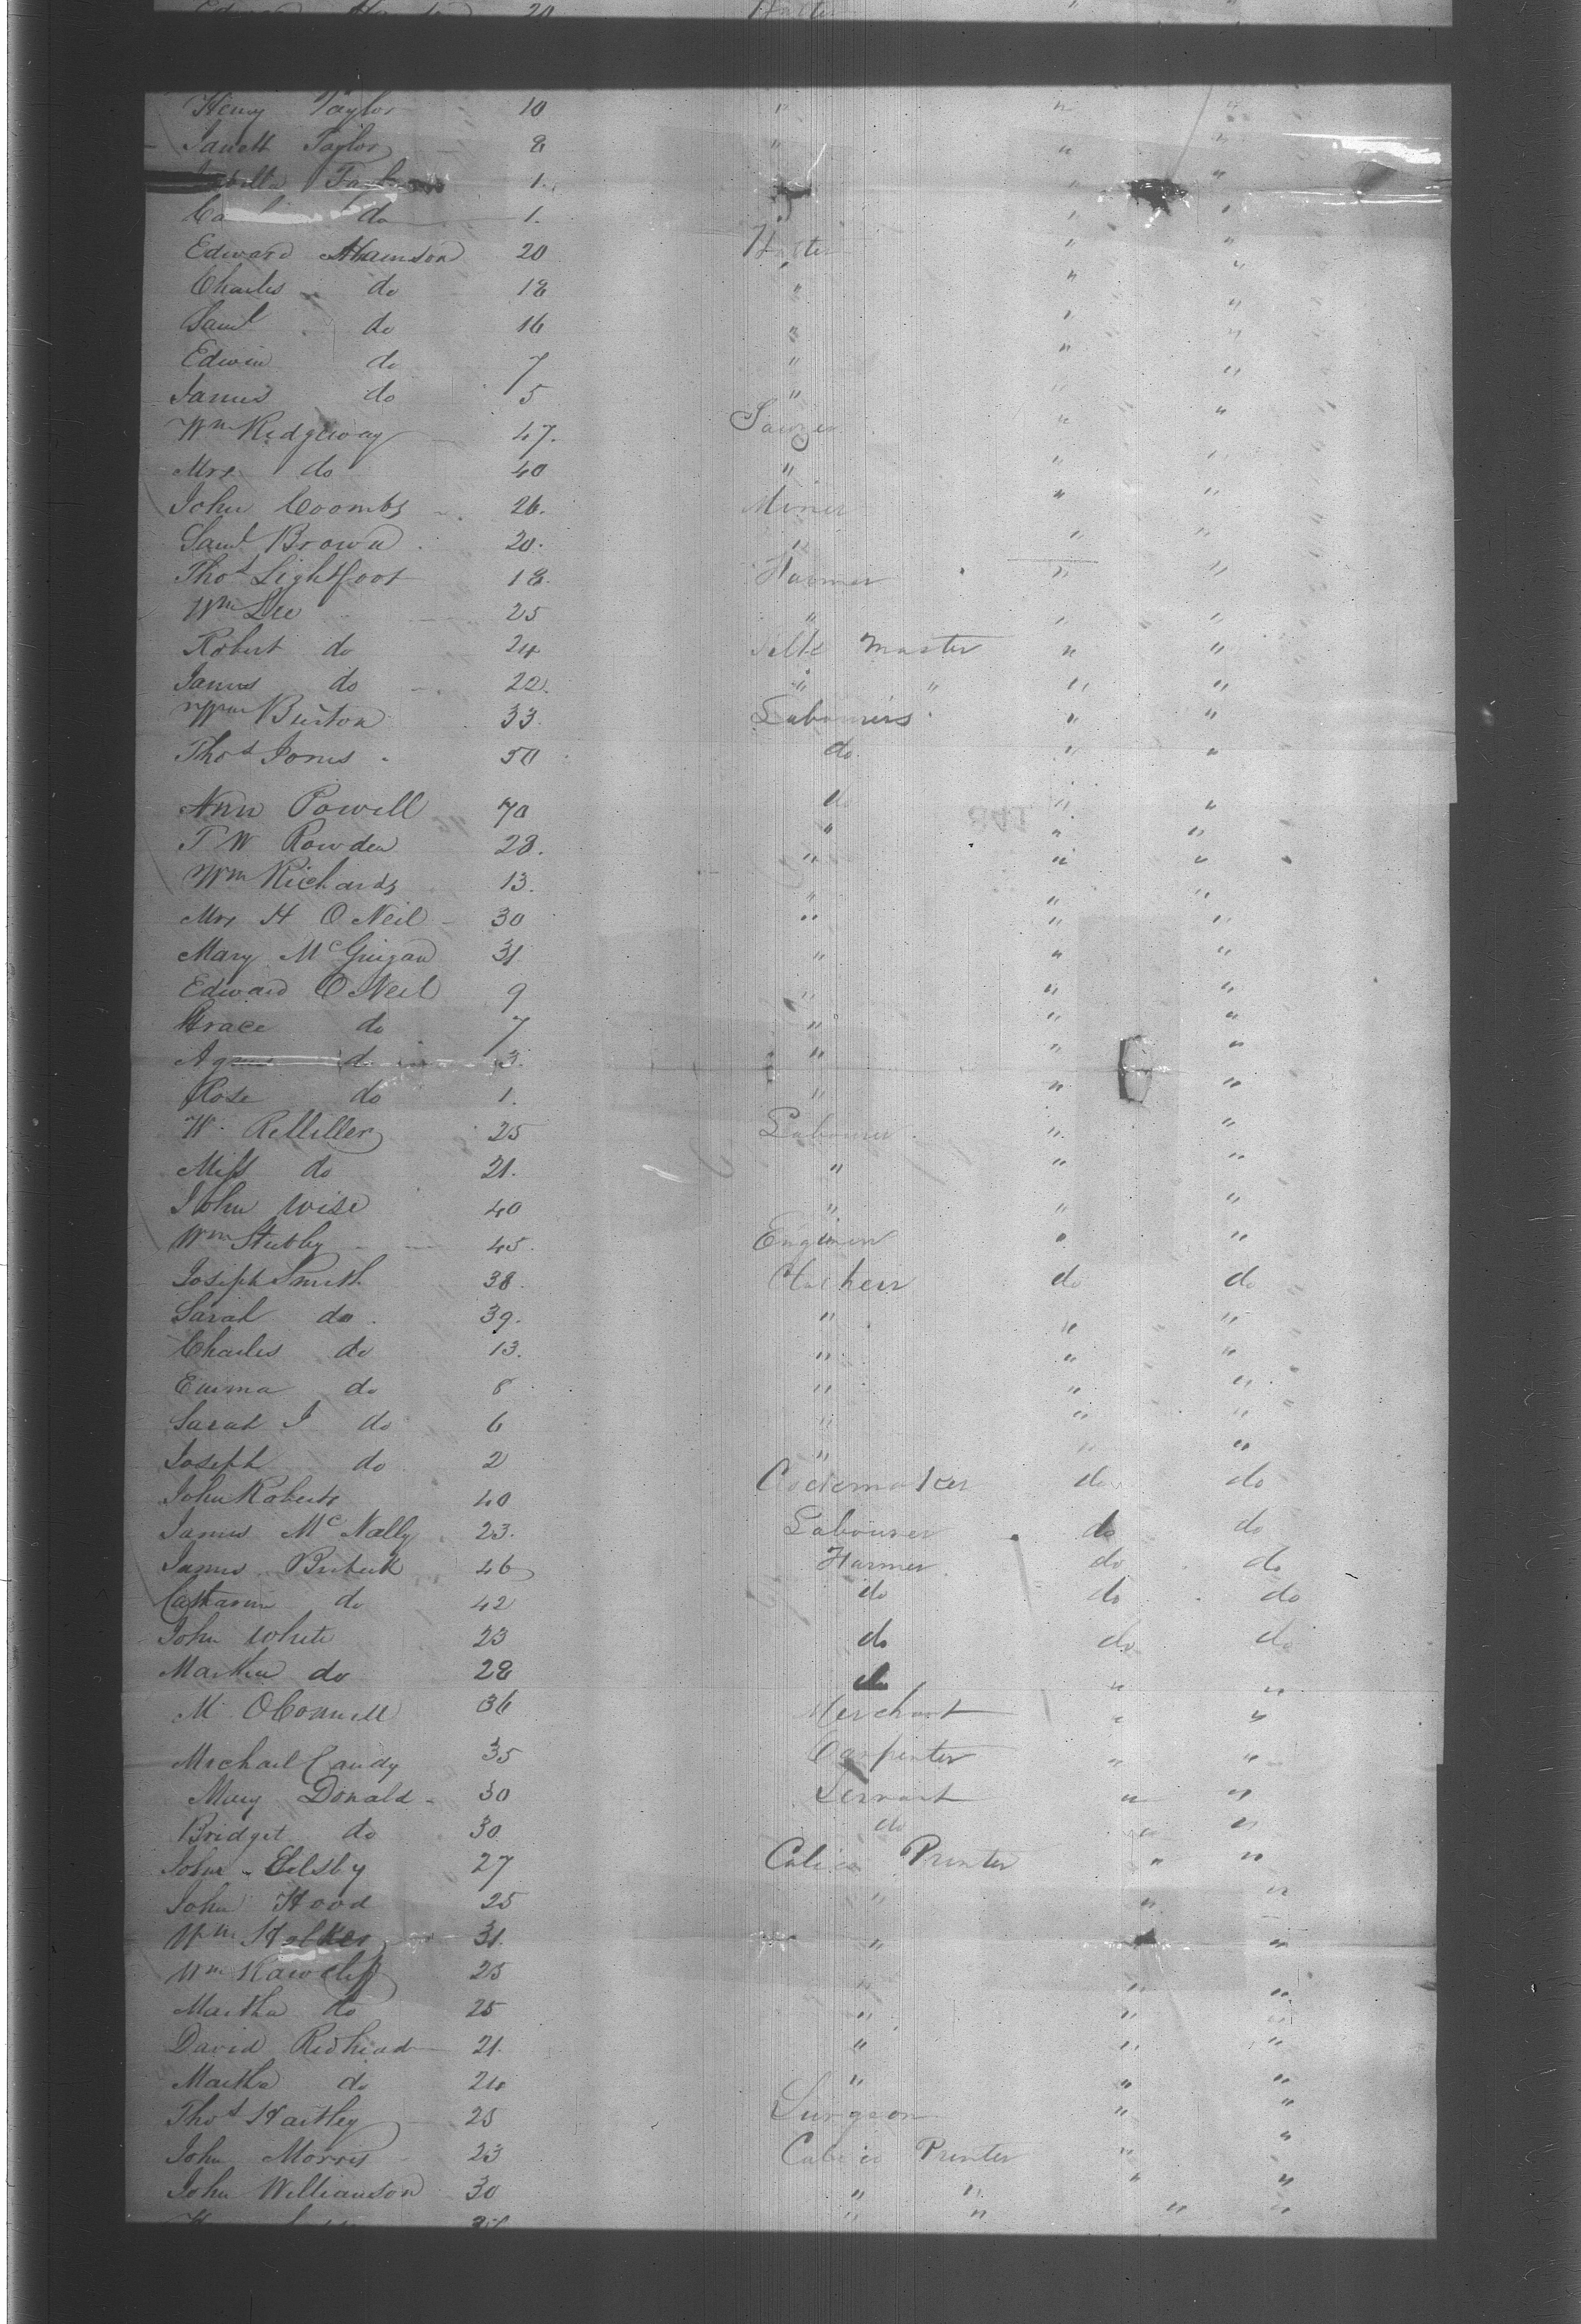 20 Hatter " "
Henry Taylor 10 " " "
Janett Taylor 8 " " "
1. " "
do 1. " "
Edward Adamson 20 Hatter " "
Charles do 18 " " "
Saml do 16 " " "
Edwin do 7 " " "
James do 5 " " "
Wm Ridgeway 47. Sawyer " "
Mrs do 40 " " "
John Coombs 26. Miner " "
Saml Brown 20. " " "
Thos Lightfoot 18. Farmer " "
Wm Lee 25 " " "
Robert do 24 Silk Master " "
James do 22. " " " "
Wm Burton 33. Labourers " "
Thos Jones 50 do " "
Ann Powell 70 do " "
T W Rowden 28. " " "
Wm Richards 13. " " "
Mrs H O Neil 30 " " "
Mary McGuigan 31. " " "
Edward O Neil 9 " " "
Grace do 7 " " "
Agnes do 3. " " "
Rose do 1. " " "
W. 25 Labourer " "
Miss do 21. " " "
John Wise 40 " " "
Wm Stubby 45. Engineer " "
Joseph Smith 38. do do
Sarah do. 39. " " "
Charles do 13. " " "
Emma do 8 " " "
Sarah J do 6 " " "
Joseph do 2 " " "
John Roberts 40 Clockmaker do do
James McNally 23. Labourer do do
James 46 Farmer do do
Catharine do 42 do do do
John White 23 do do do
Martha do 28 do " "
M. OConnell 36 Merchant " "
Michael Candy 35 Carpenter " "
Mary Donald 30 Servant " "
Bridget do 30 do " "
John Eelsby 27 Calico Printer " "
John Hood 25 " " "
Wm Holker 31. " " "
Wm Rawcliff 25 " " "
Martha do 25 " " "
David Redhead 21. " " "
Martha do 24 " " "
Thos Hartley 25 Surgeon " "
John Morris 23 Calico Printer " "
John Williamson 30 " " " "
" " " "